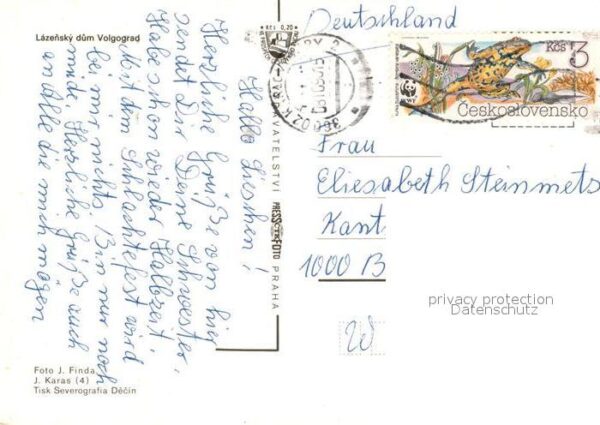 Lázeňský dům Volgograd
Hallo Lieschin!
Herzliche Grüße von hir
sendet Dir Deine Schwester,
Habe schon wieder Halbzeit,
Mit dem Schlachtefest wird
bei mir nichts. Bin nur noch
müde. Herzliche Grüße auch
an Alle die mich mögen
Foto J. Finda,
J. Karas (4)
Tisk Severografia Děčín
Kčs 0,20
VATELSTVÍ PRESSFOTO PRAHA
Deutschland
360 02 K. VARY 2
Kčs 3
Československo
Frau
Eliesabeth Steinmets
Kant
1000 B
privacy protection
Datenschutz